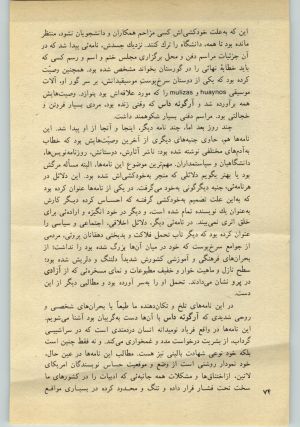 این که به‌علت خودکشی‌اش کسی مزاحم همکاران و دانشجویان نشود، منتظر
مانده بود تا همه، دانشگاه را ترك کنند. نزدیك جسدش، نامه‌ئی پیدا شد که در
آن جزئیات مراسم دفن و محل برگزاری مجلس ختم و اسم و رسم کسی که
باید خطابهٔ نهائی را در گورستان بخواند مشخص شده بود. همچنین وصیّت
کرده بود که یکی از دوستان سرخ‌پوست موسیقیدانش، بر سر گور او، آلات
موسیقی huaynos و mulizas را که مورد علاقه‌اش بود بنوازد. وصیّت‌هایش
همه برآورده شد و آرگونه داس که وقتی زنده بود، مردی بسیار فروتن و
خجالتی بود. مراسم دفنی بسیار شکوهمند داشت.
چند روز بعد اما، چند نامه دیگر، اینجا و آنجا از او پیدا شد. این
نامه‌ها هم، حاوی جنبه‌های دیگری از آخرین وصیّت‌هایش بود که خطاب
به‌آدم‌های مختلفی نوشته شده بود: ناشر آثارش، دوستانش، روزنامه‌نویس‌ها،
دانشگاهیان و سیاستمداران. مهم‌ترین موضوع این نامه‌ها، البته مسأله مرگش
بود یا بهتر بگویم دلائلی که منجر به‌خودکشی‌اش شده بود. این دلائل در
هرنامه‌ئی، جنبه دیگرگونی به‌خود می‌گرفت. در یکی از نامه‌ها عنوان کرده بود
که‌به‌این علت تصمیم به‌خودکشی گرفته، که احساس کرده دیگر کارش
به‌عنوان یك نویسنده تمام شده است، و دیگر در خود انگیزه و اراده‌ئی برای
خلق اثری نمی‌بیند. در نامه‌ئی دیگر، دلائل اخلاقی، اجتماعی و سیاسی را
عنوان کرده بود که دیگر تاب تحمل فلاکت و بدبختی دهقانان پروئی، مردمی
از جوامع سرخ‌پوست که خود در میان آن‌ها بزرگ شده بود را نداشت؛ از
بحران‌های فرهنگی و آموزشی کشورش شدیداً دلتنگ و دلریش شده بود؛
سطح نازل و ماهیت خوار و خفیف مطبوعات و نمای مسخره‌ئی که از آزادی
در پرو نشان می‌دادند، تحمل او را به‌سر آورده بود و مطالبی دیگر از این
دست.
در این نامه‌های تلخ و تکان‌دهنده ما طبعاً با بحران‌های شخصی و
روحی شدیدی که آرگونه داس با آن‌ها دست به‌گریبان بود آشنا می‌شویم.
این نامه‌ها در واقع فریاد نومیدانه انسان دردمندی است که در سراشیبی
گرداب، از بشریت درخواست مدد و غمخواری می‌کند. و نه فقط چنین است
بلکه خود نوعی شهادت بالینی نیز هست. مطالب این نامه‌ها در عین حال،
خود نمودار روشنی است از وضع و موقعیت حساس نویسندگان امریکای
لاتین، ازاختناق‌ها و مشکلات همه جانبه‌ئی که ادبیات را در کشورهای ما
سخت تحت فشار قرار داده و تنگ و محدود کرده در بسیاری مواقع
۷۴